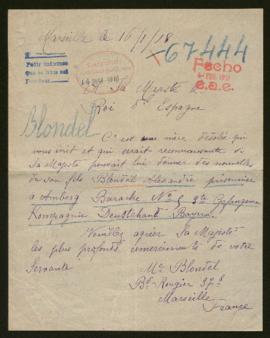 Marseille le 16/1/18
67444
Fecho
A Sa Majesté le
Roi d'Espagne
Blondel
C'est une mère désolée qui
vous écrit et qui serait reconnaissante
Sa Majesté pouvait lui donner des nouvelles
de son fils Blondel Alexandre prisonnier
a Amberg Baracke No 5 Gefangenen
Kompagnie Deutschland Bayern
Veuillez agréer Sa Majesté
les plus profonds remerciements de votre
Servante
Me Blondel
Bd Rougier 37
Marseille
France